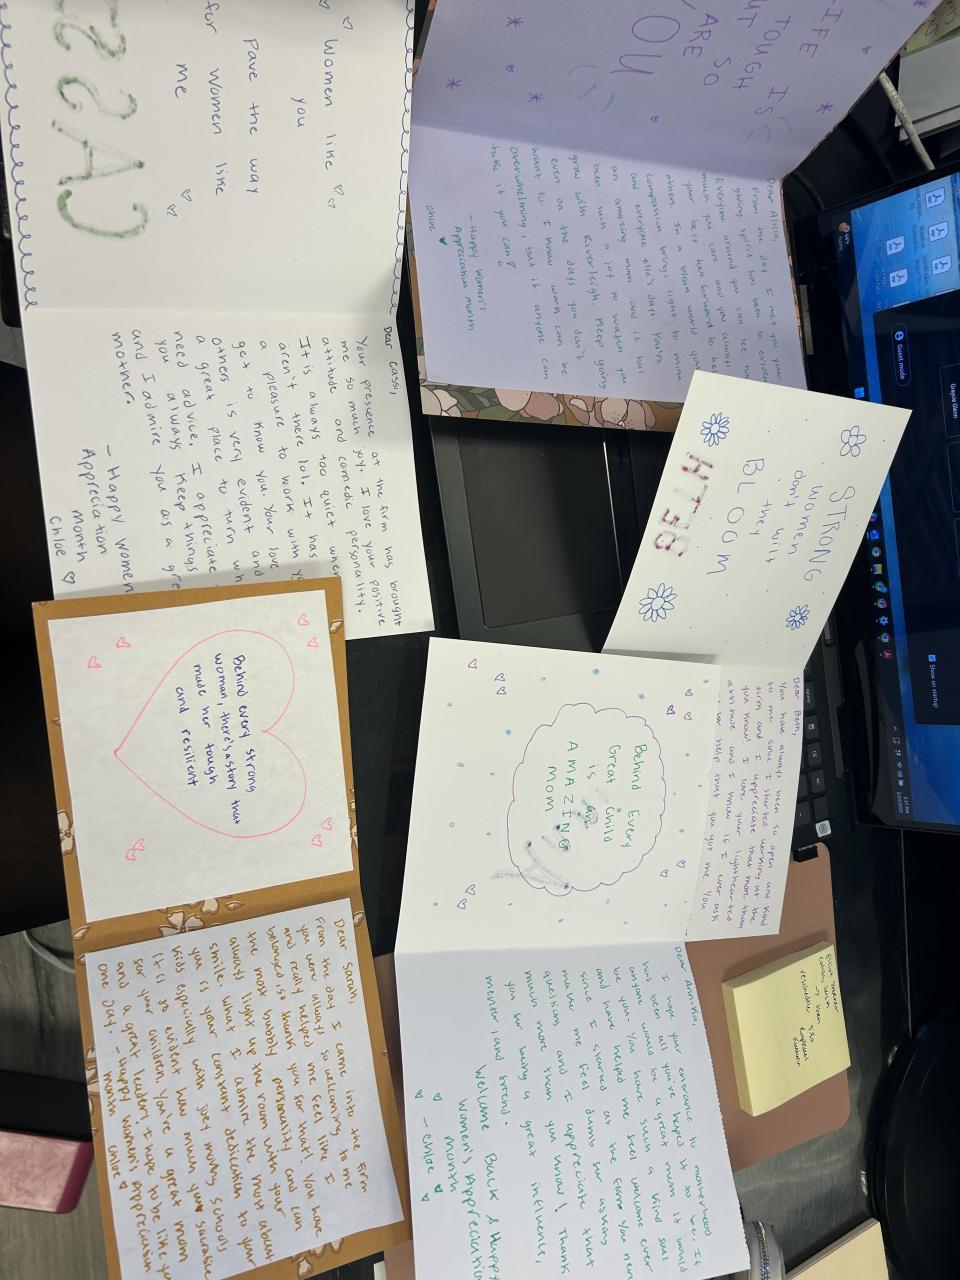 LIFE
IS
TOUGH
BUT
SO
ARE
YOU
Dear Alicia,
From the day I met you your
giving spirit has been so evident
Everyone around you can see how
much you care and you always
your best look forward to help
others. In a bleak world your
compassion brings light to mine
and everyone else's days. You're
an amazing mom and it has
been such a joy to watch you
grow with Riverleigh. Keep going
even on the days you don't
want to. I know work can be
overwhelming, but if anyone can
take it you can
- Happy Women's
Appreciation month
Chloe
Women like
you
Pave the way
for women like
me
CASSI
Dear Cassi,
Your pressence at the firm has brought
me so much joy. I love your positive
attitude and comedic personality.
It is always too quiet when
aren't there lol. It has
a pleasure to work with
get to know you. Your love
others is very evident and
a great place to turn wh
need advice. I appreciate
you always keep things
and I admire you as a gre
mother.
- Happy Women
Appreciation
month
Chloe
STRONG
women
don't
they
BLOOM
BETH
Dear Beth,
You have always been so open and kind
to me since I started working at the
firm and I appreciate that more than
you know! I love your lighthearted
attitude and I know if I ever ask
for help that you got me. You
Behind every strong
woman, there's a story that
made her tough
and resilient
Dear Sarah,
From the day I came into the firm
you were always so welcoming to me
and really helped me feel like I
belonged so thank you for that! You have
the most bubbly personality and can
always light up the room with your
smile. What I admire the most about
you is your constant dedication to your
kids especially with joey moving schools
it is so evident how much you sacrifice
for your children. You're a great mom
and a great leader! I hope to be like you
one day. - Happy Women's Appreciation
month Chloe
Behind Every
Great Child
is an
AMAZING
MOM
Dear Annika,
I hope your entrance to motherhood
has been all you've hoped it to be. If
anyone would be a great mum it would
be you. You have such a kind soul
and have helped me feel welcome ever
since I started at the firm. You never
make me feel dumb for asking
question, and I appreciate that
much more than you know! Thank
you for being a great influence,
mentor, and friend.
Welcome Back & Happy
Women's Appreciation
month
- Chloe
Guest mode
Grayce Glenn
Show on startup
2:37 PM